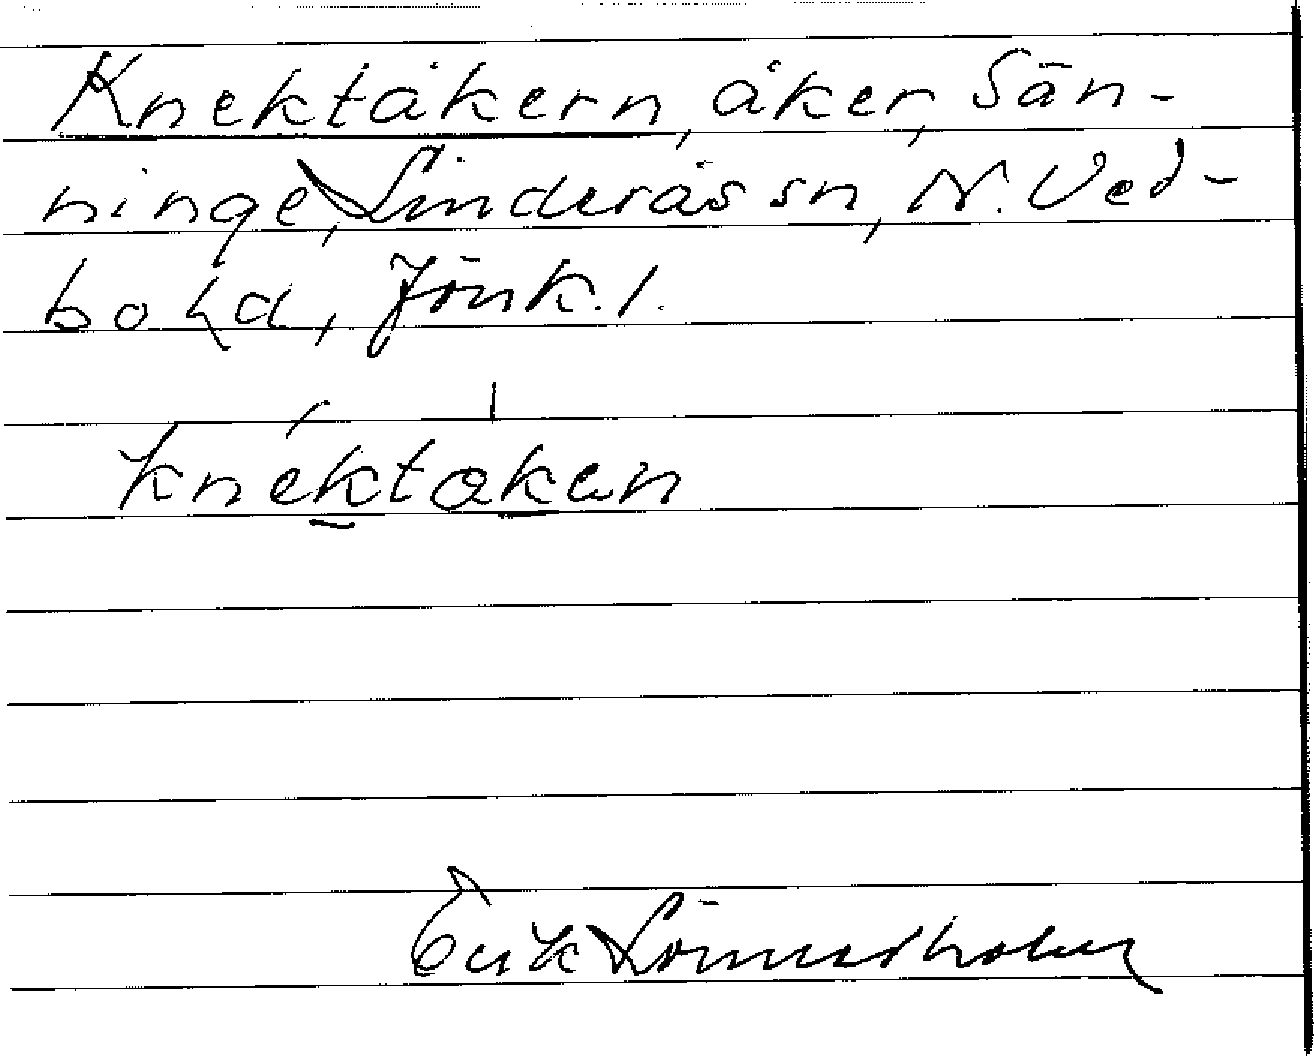 Knektåkern, åker, Sän-
ninge, Linderås sn, N. Ved-
bo hd, Jönk. l.
knektåken
Erik Lönnerholm